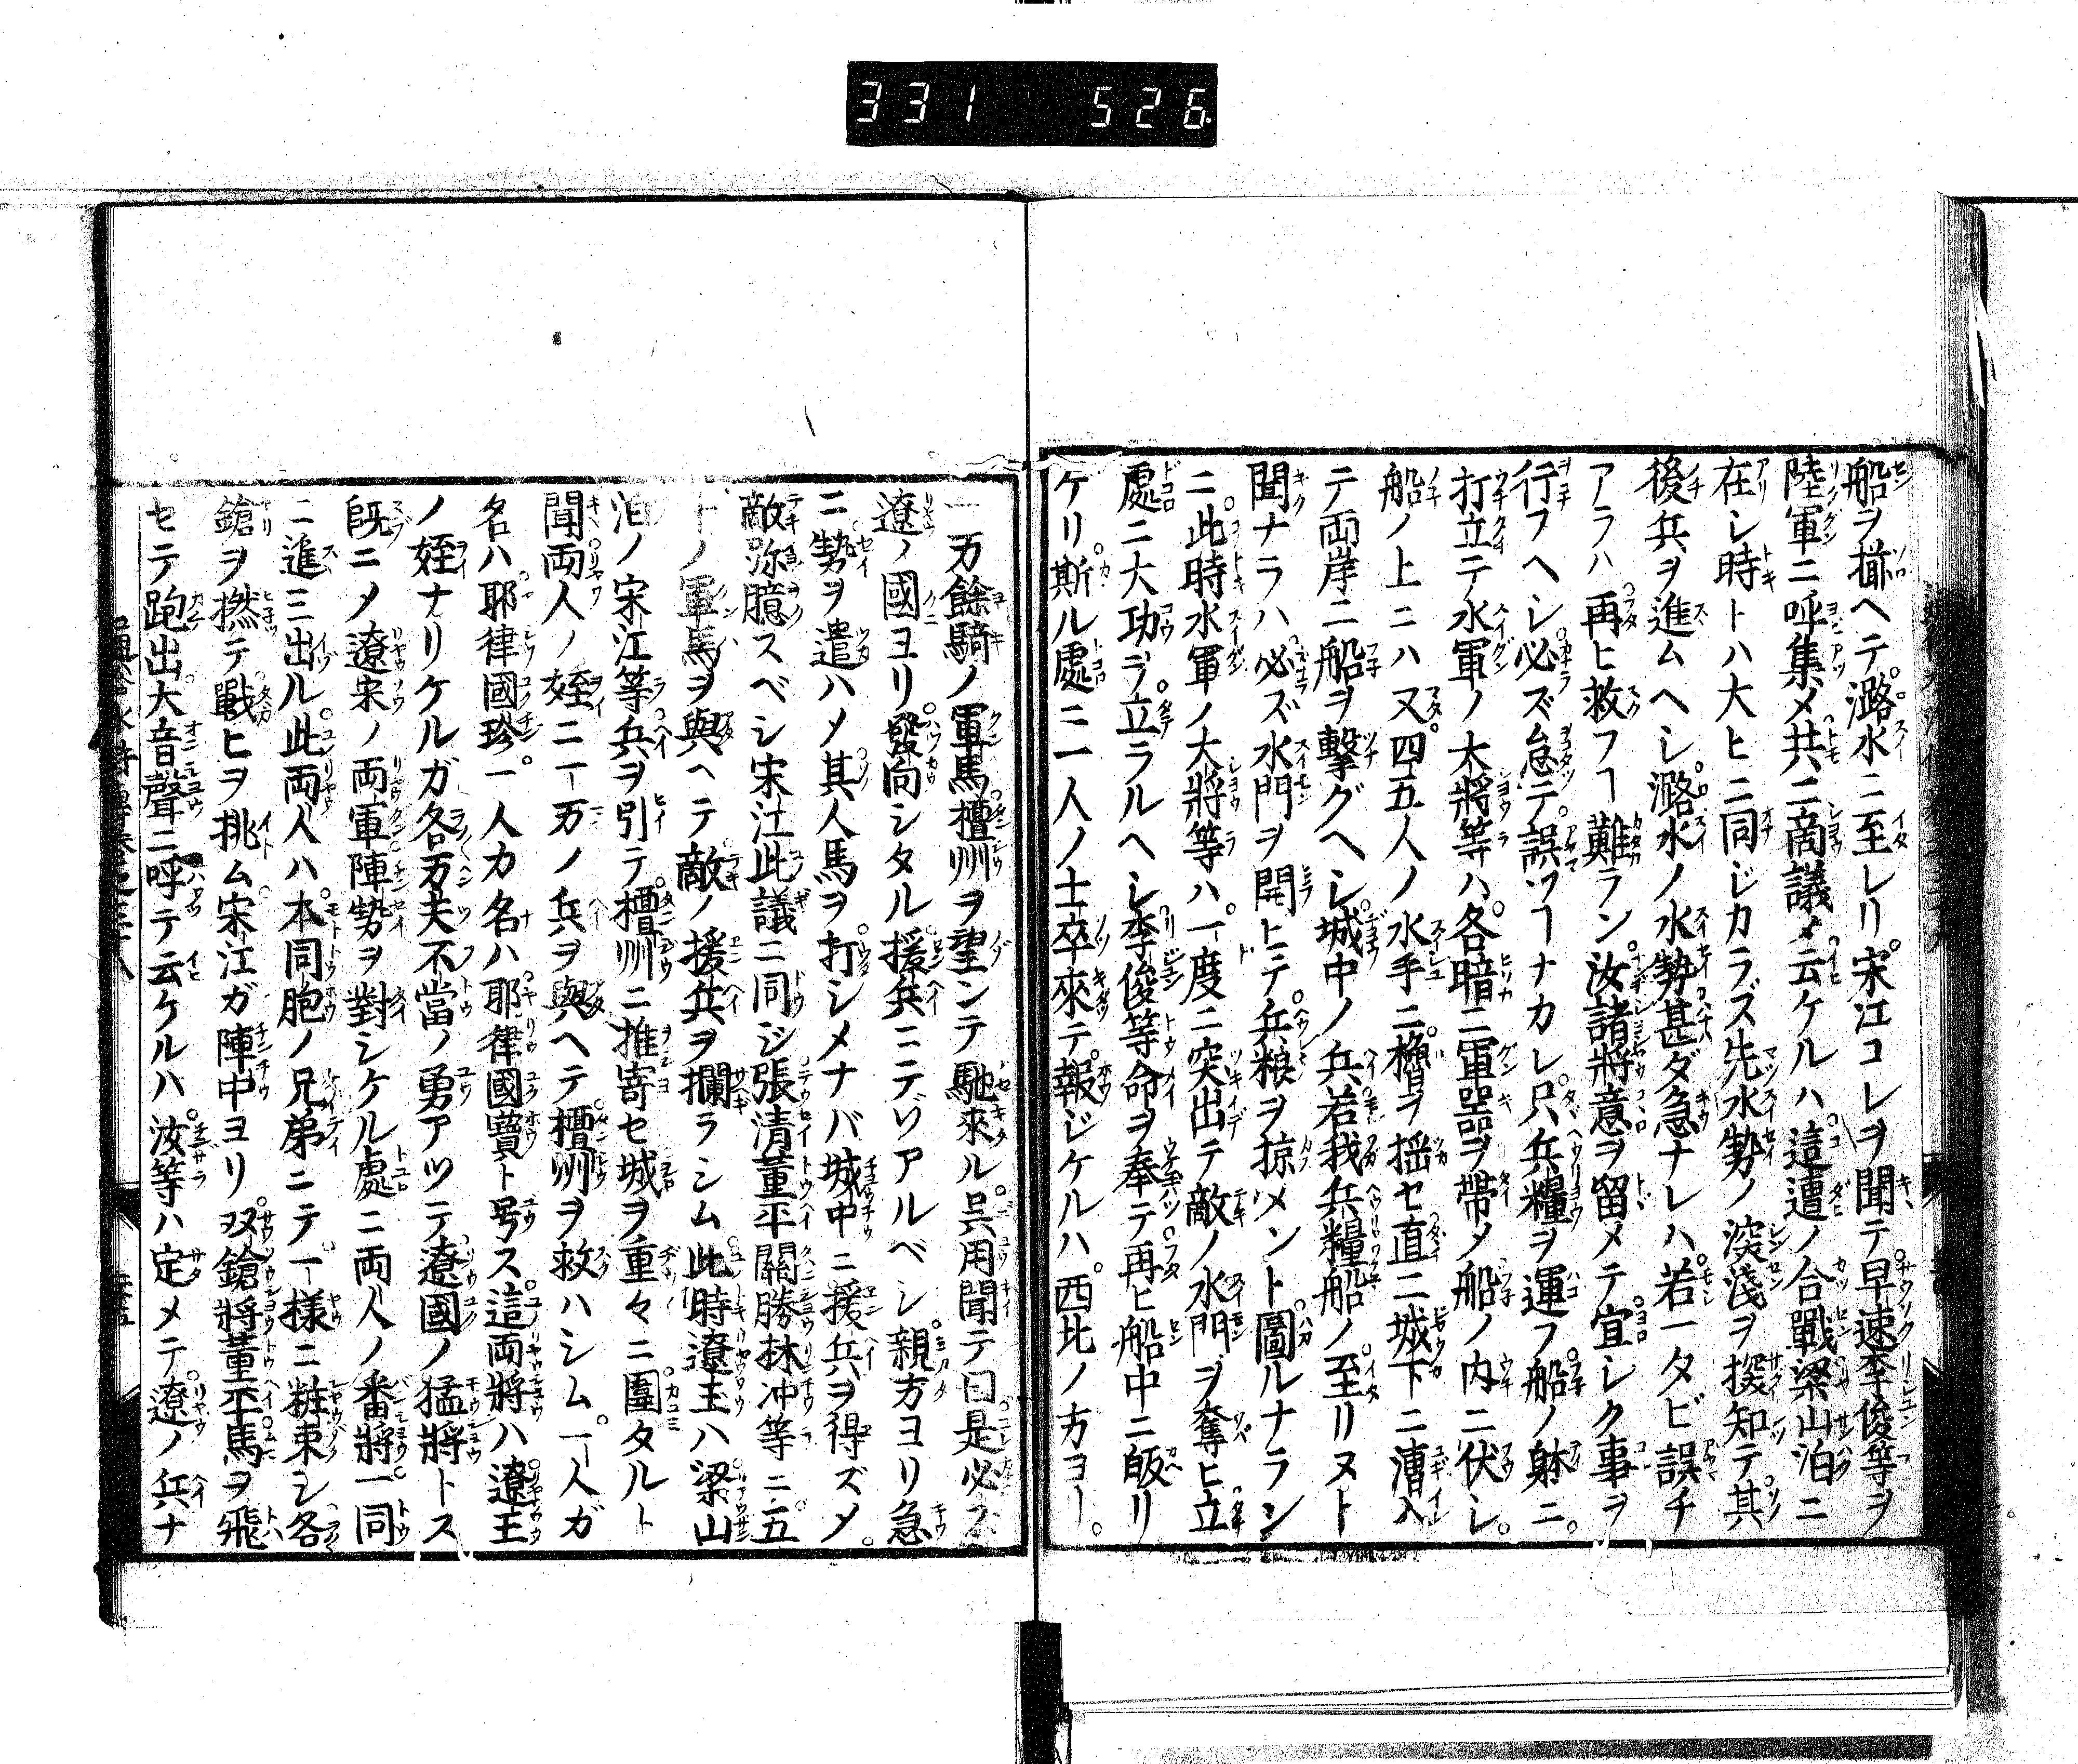 331 526
船ヲ揃ヘテ潞水ニ至レリ宋江コレヲ聞テ早速李俊等ヲ
陸軍ニ呼集メ共ニ商議メ云ケルハ這遭ノ合戰梁山泊ニ
在シ時トハ大ヒニ同ジカラズ先水勢ノ深淺ヲ探知テ其
後兵ヲ進ムヘシ潞水ノ水勢甚ダ急ナレハ若一タビ誤チ
アラハ再ヒ救フヿ難ラン汝諸將意ヲ留メテ宜シク事ヲ
行フヘシ必ズ怠テ誤ツヿナカレ只兵糧ヲ運フ船ノ躰ニ
打立テ水軍ノ大將等ハ各暗ニ軍器ヲ帶メ船ノ内ニ伏シ
船ノ上ニハ又四五人ノ水手ニ櫓ヲ揺セ直ニ城下ニ漕入
テ両岸ニ船ヲ擊グヘシ城中ノ兵若我兵糧船ノ至リヌト
聞ナラハ必ズ水門ヲ開ヒテ兵粮ヲ掠メント圖ルナラン
ニ此時水軍ノ大將等ハ一度ニ突出テ敵ノ水門ヲ奪ヒ立
處ニ大功ヲ立ラルヘシ李俊等命ヲ奉テ再ヒ船中ニ皈リ
ケリ斯ル處ニ一人ノ士卒來テ報ジケルハ西北ノ方ヨリ
一万餘騎ノ軍馬檀州ヲ望ンテ馳來ル呉用聞テ曰是必ス
遼ノ國ヨリ發向シタル援兵ニテゾアルベシ親方ヨリ急
ニ勢ヲ遣ハメ其人馬ヲ打シメナバ城中ニ援兵ヲ得ズメ
敵弥臆スベシ宋江此議ニ同ジ張清董平關勝林冲等ニ五
千ノ軍馬ヲ與ヘテ敵ノ援兵ヲ攔ラシム此時遼王ハ梁山
泊ノ宋江等兵ヲ引テ檀州ニ推寄セ城ヲ重々ニ圍タルト
聞両人ノ姪ニ一万ノ兵ヲ與ヘテ檀州ヲ救ハシム一人ガ
名ハ耶律國珍一人カ名ハ耶律國寶ト号ス這両將ハ遼王
ノ姪ナリケルガ各万夫不當ノ勇アツテ遼國ノ猛將トス
既ニメ遼宋ノ両軍陣勢ヲ對シケル處ニ両人ノ番將一同
ニ進ミ出ル此両人ハ本同胞ノ兄弟ニテ一様ニ粧束シ各
鎗ヲ撚テ戰ヒヲ挑ム宋江ガ陣中ヨリ双鎗將董平馬ヲ飛
セテ跑出大音聲ニ呼テ云ケルハ汝等ハ定メテ遼ノ兵ナ